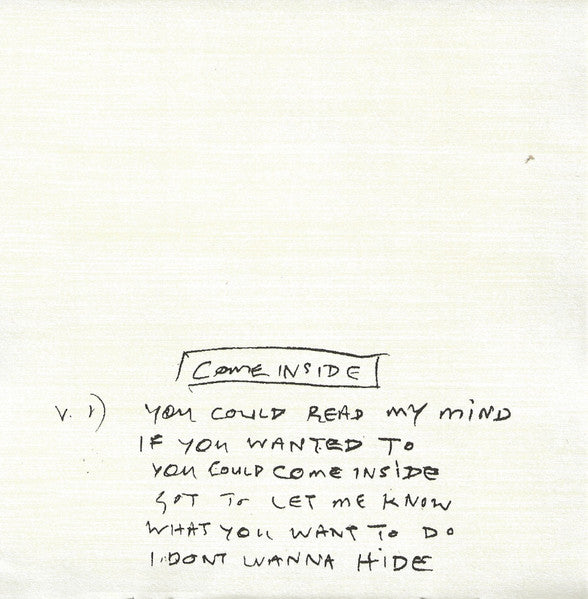 COME INSIDE
V. 1) YOU COULD READ MY MIND
IF YOU WANTED TO
YOU COULD COME INSIDE
GOT TO LET ME KNOW
WHAT YOU WANT TO DO
I DONT WANNA HIDE